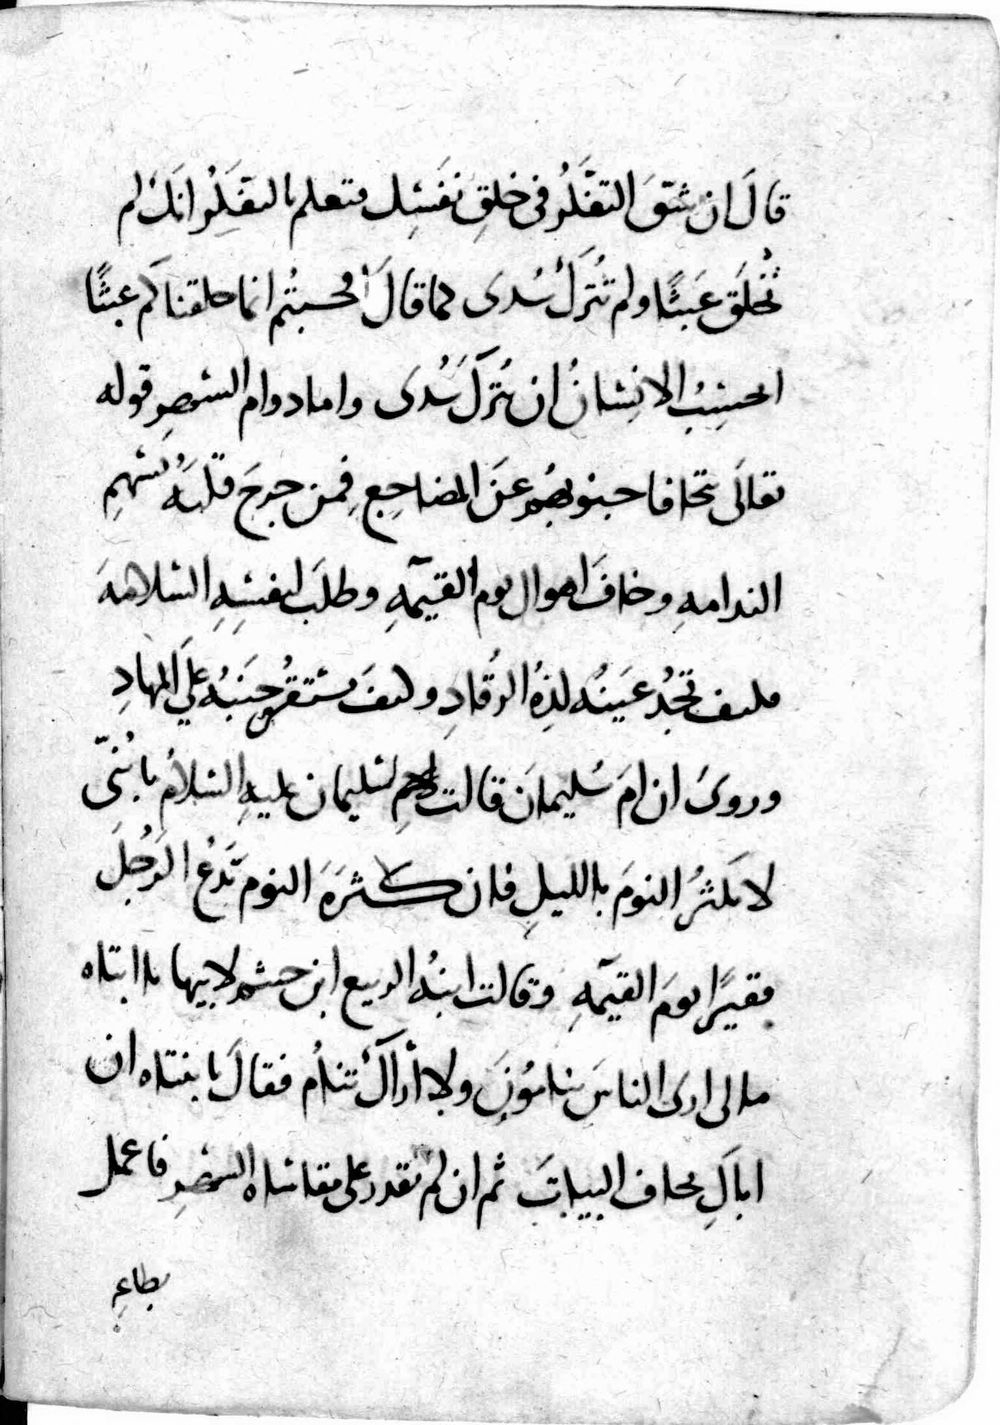 قالَ ان شقَ التفَكَرُ في خلقِ نفَسِك فتعلم بالتفَكِر انكَ لم
تُخلَق عَبَثًا ولم تُترَكْ سُدى كما قالَ افحسبتُم انما خلقناكم عبثًا
ايحسِبُ الانِسانُ ان يُتركَ سُدى واما دوام السهرِ قوله
تعالَى تتجافا جنوبهُم عَنَ المضاجِعِ فمن جرحَ قلبَهُ بسهمِ
الندامهِ وخافَ اهوال يوم القيٰمهِ وطلَب لنفسِهِ السلامهَ
فكيف تجَدُ عَينُه لذهُ الرقُادِ وكيفَ يستقرُ جَنبُه علَى المهادِ
وروىَ ان امَ سُليمانَ قالت لسُليمان عليهِ السَلامُ يا بُنيّ
لا تكثرُ النومَ بالليلِ فان كثرَةَ النوم تَدَعُ الرَجُلَ
فقيرًا يومَ القيٰمهِ وقالت ابنهُ الربيع ابن خثيم لابيها يا ابتاه
مالى ارى الناسَ ينامُونَ ولا أراكَ تنامُ فقالَ يا بنتاه ان
اباكِ يخاف البياتَ ثم ان لم تقدر على مقاساه السهرِ فاعمل
بطاعهِ